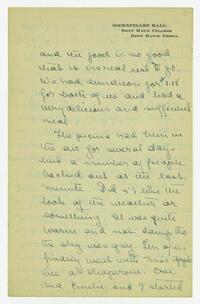 ROCKEFELLER HALL
BRYN MAWR COLLEGE
BRYN MAWR, PENNA.
and the food is so good
that it is a real rest to go.
We had luncheon for $1.18
for both of us and had a
very delicious and sufficient
meal.
The picnic had been in
the air for several days
but a number of people
backed out at the last
minute. Did n't like the
look of the weather or
something. It was quite
warm and not damp tho
the day was gray. Ten of us
finally went with Miss Apple
bee as chaperone. Cree
and Emilie and I started